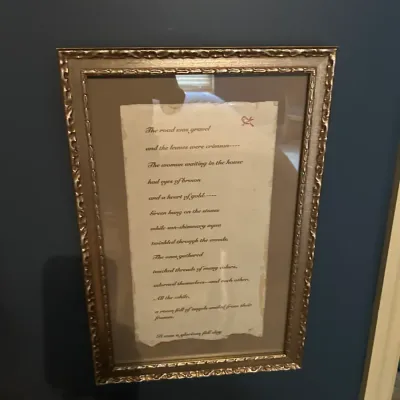 The road was gravel
and the leaves were crimson----
The woman waiting in the house
had eyes of brown
and a heart of gold.----
hung on the
while
twinkled through the woods.
The
twisted threads of many colors,
adorned themselves—and each other,
All the while,
a room full of angels smiled from their
frames.
It was a glorious fall day.